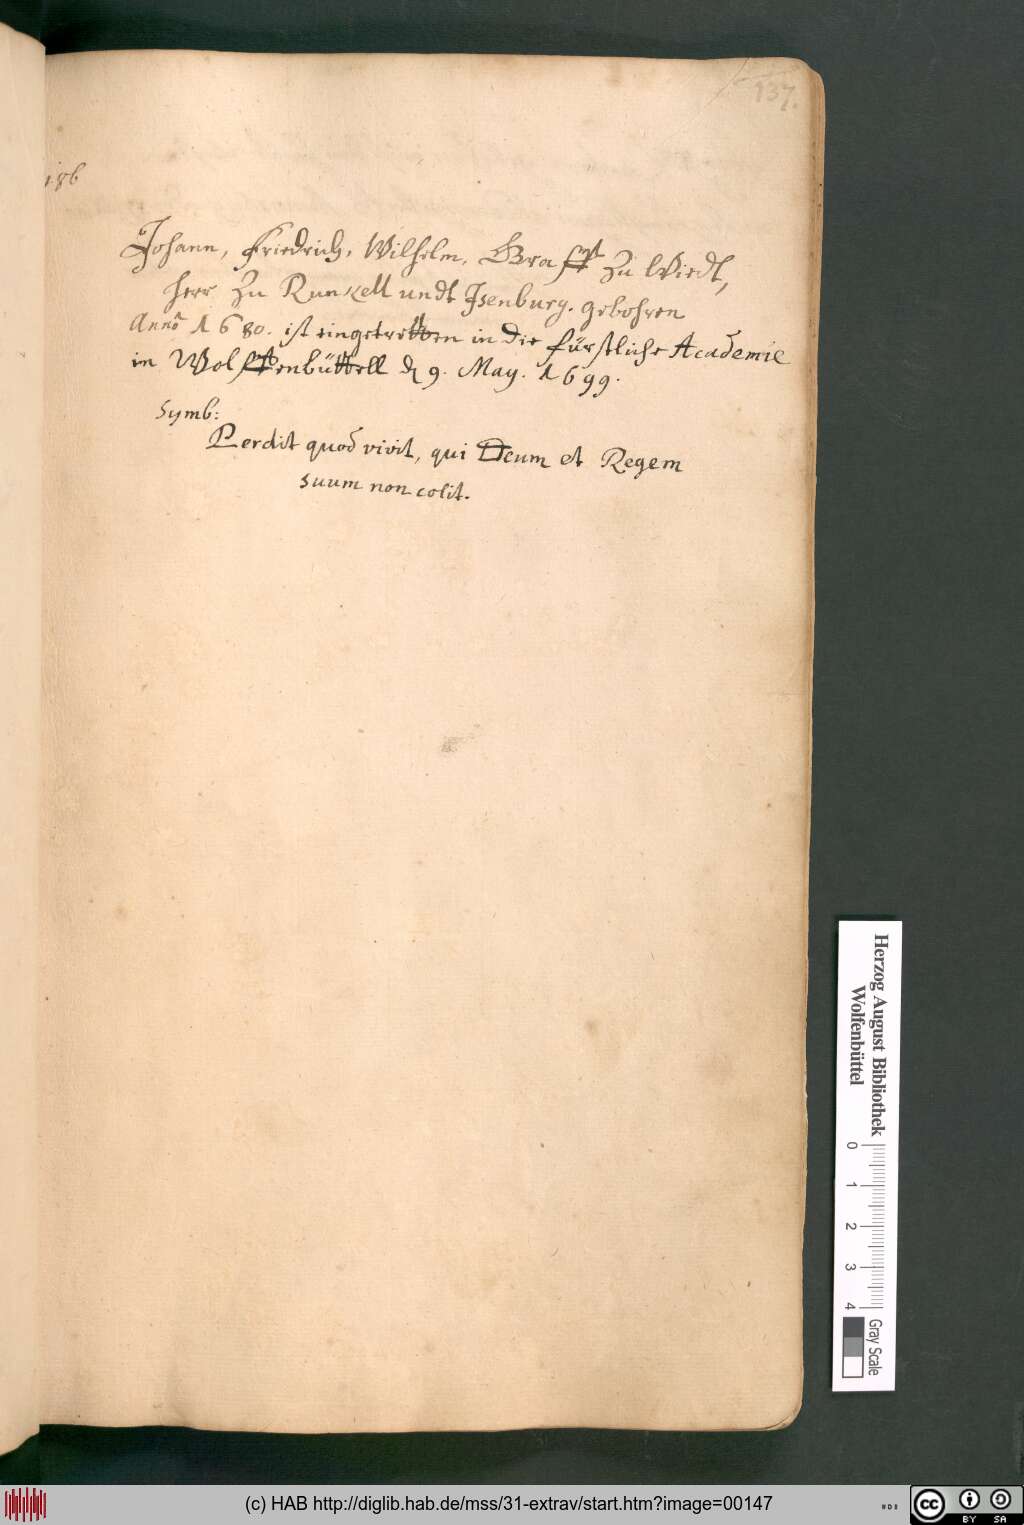 137.
186
Johann, Friedrich, Wilhelm, Graff zu Wiedt,
Herr zu Runkell undt Isenburg. gebohren
Anno 1680. ist eingetretten in die fürstliche Academie
in Wolffenbüttell d 9. May. 1699.
Symb:
Perdit quod vivit, qui Deum et Regem
suum non colit.
Herzog August Bibliothek
Wolfenbüttel
0 1 2 3 4
Gray Scale
(c) HAB http://diglib.hab.de/mss/31-extrav/start.htm?image=00147
cc BY SA